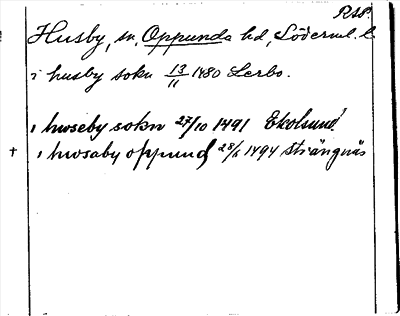 RAp.
Husby, sn, Oppunda hd, Söderml. l.
i husby sokn 13/11 1480 Lerbo.
i hwseby sokn 27/10 1491 Ekolsund!
† i hwsaby oppund 28/6 1494 Strängnäs